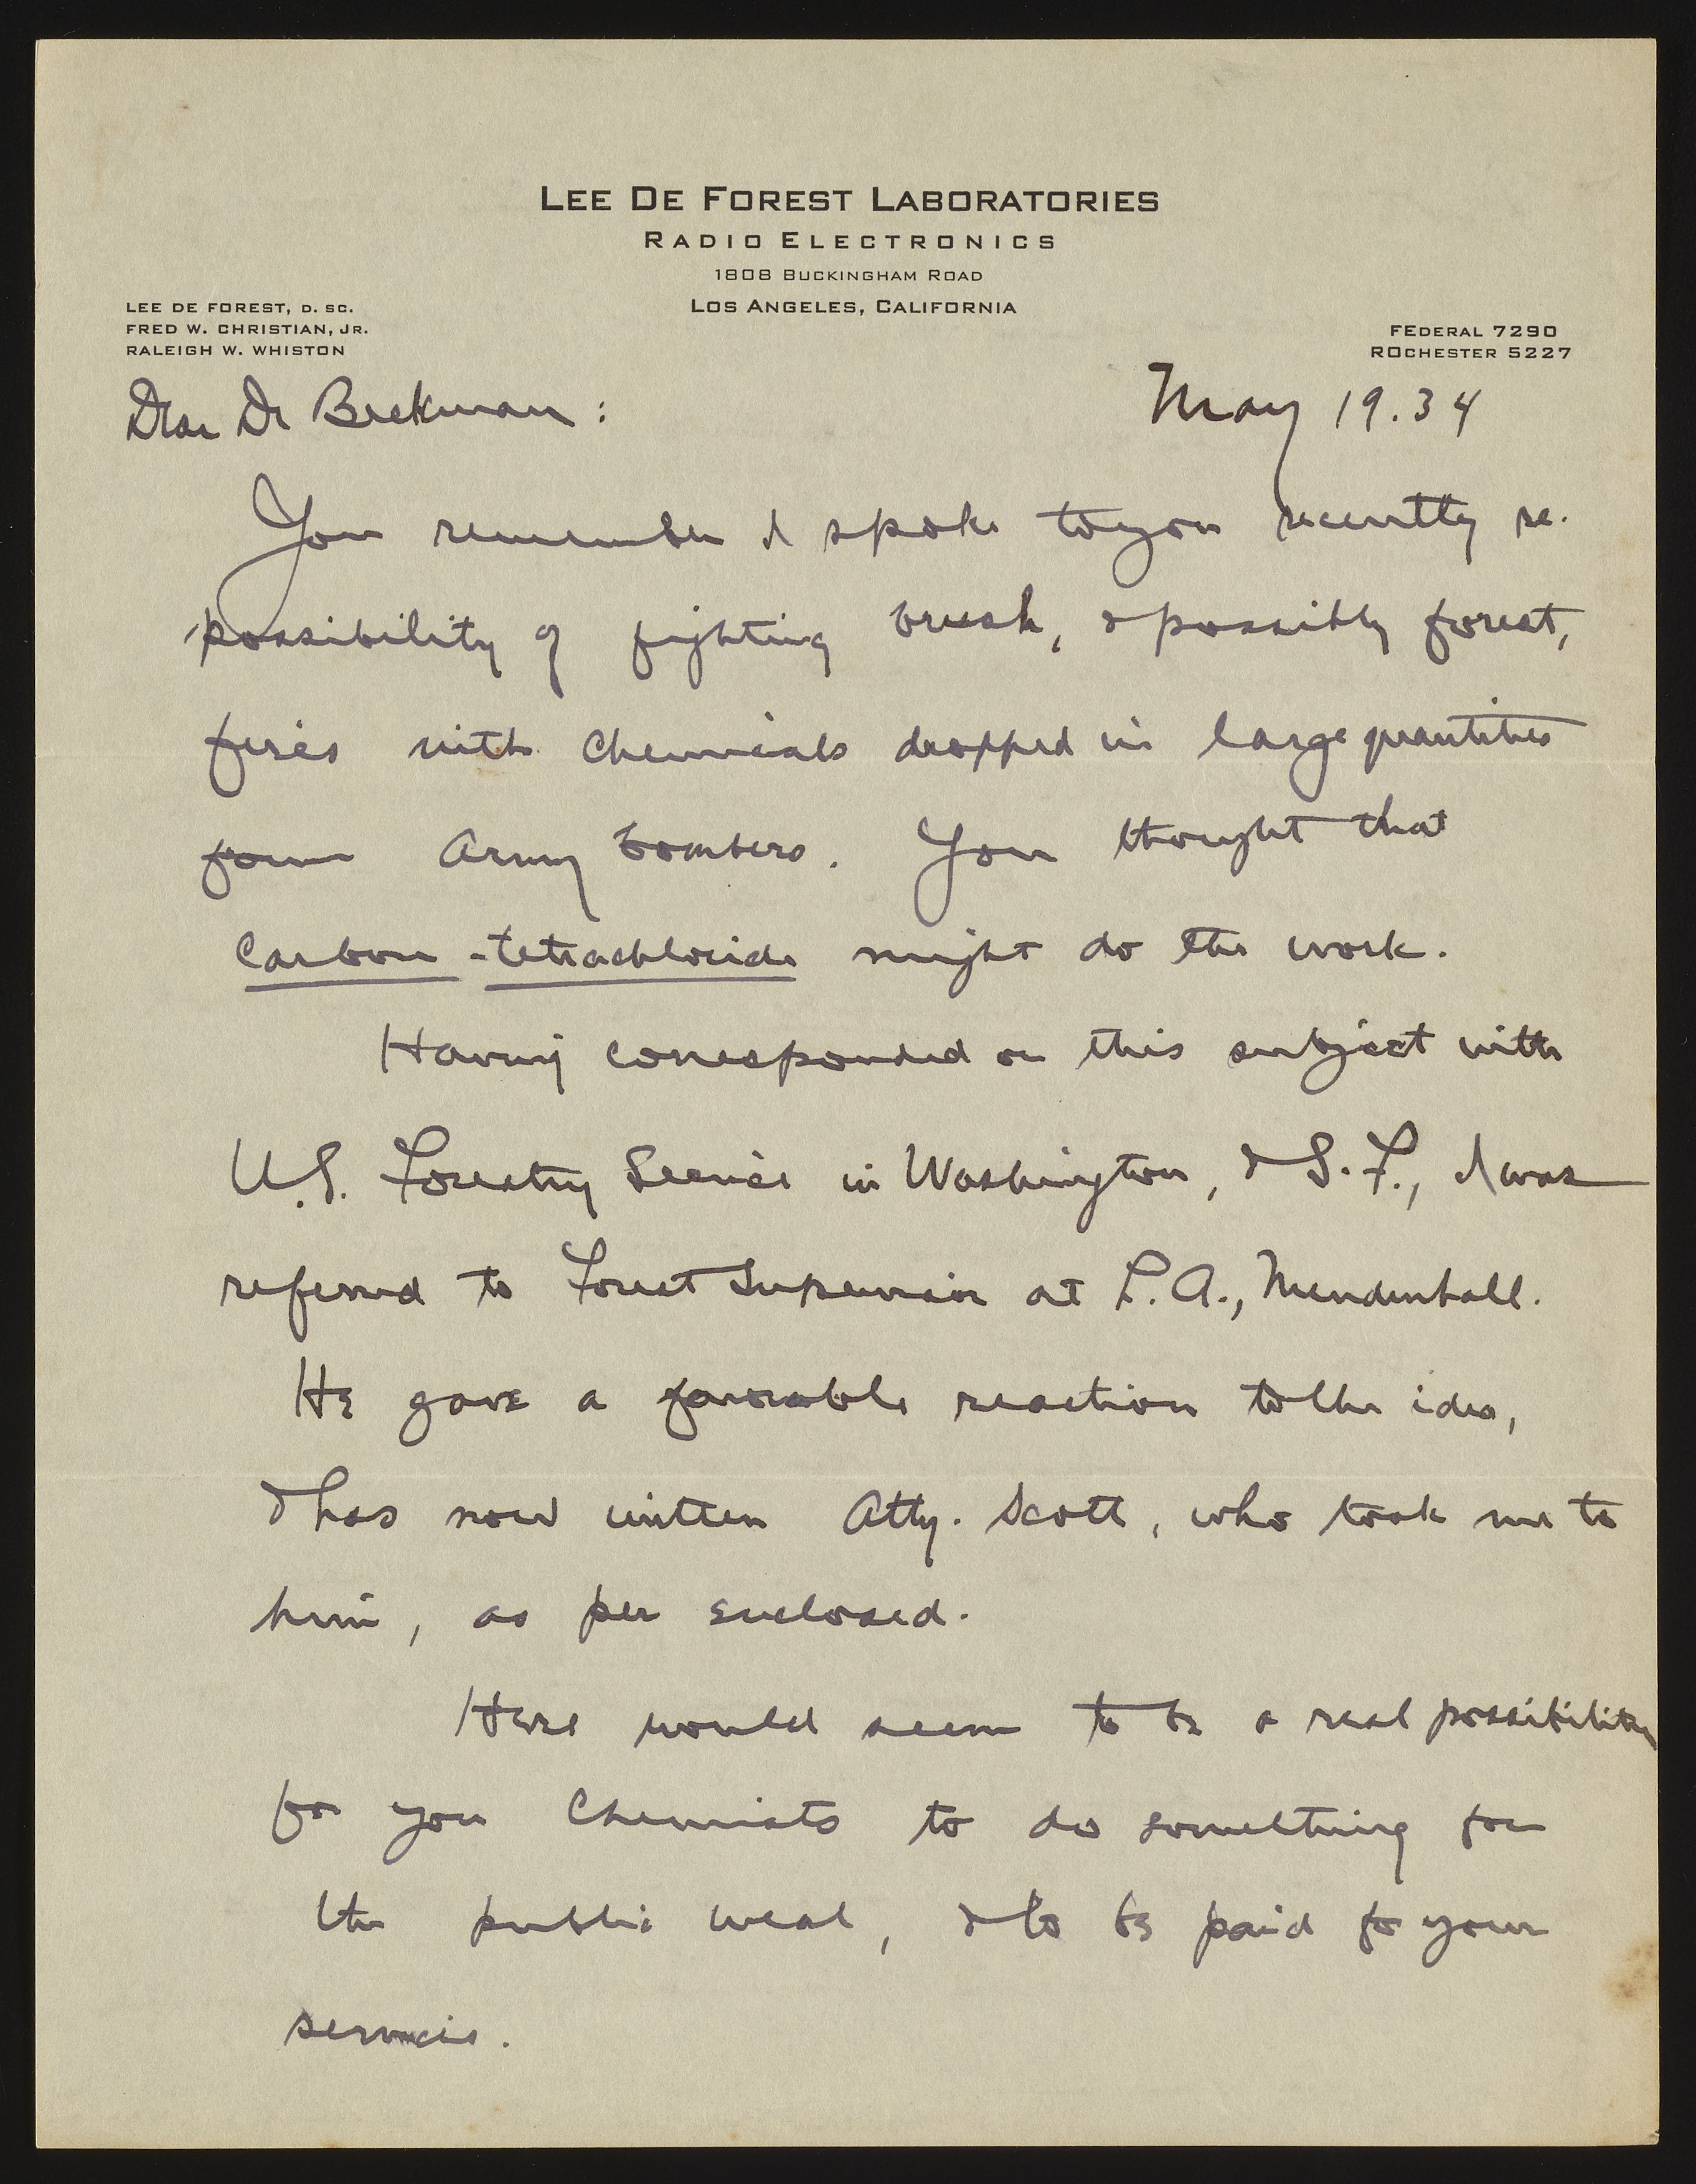 LEE DE FOREST LABORATORIES
RADIO ELECTRONICS
1808 BUCKINGHAM ROAD
LOS ANGELES, CALIFORNIA
LEE DE FOREST, D. SC.
FRED W. CHRISTIAN, JR.
RALEIGH W. WHISTON
FEDERAL 7290
ROCHESTER 5227
May 19.34
Dear Dr Beckman:
You remember I spoke to you recently re.
possibility of fighting brush, & possibly forest,
fires with chemicals dropped in large quantities
from Army bombers. You thought that
Carbon-tetrachloride might do the work.
Having corresponded on this subject with
U.S. Forestry Service in Washington, & S.F., I was
referred to Forest Supervisor at L.A., Mendenhall.
He gave a favorable reaction to the idea,
& has now written Atty. Scott, who took me to
him, as per enclosed.
Here would seem to be a real possibility
for you Chemists to do something for
the public weal, & to be paid for your
services.